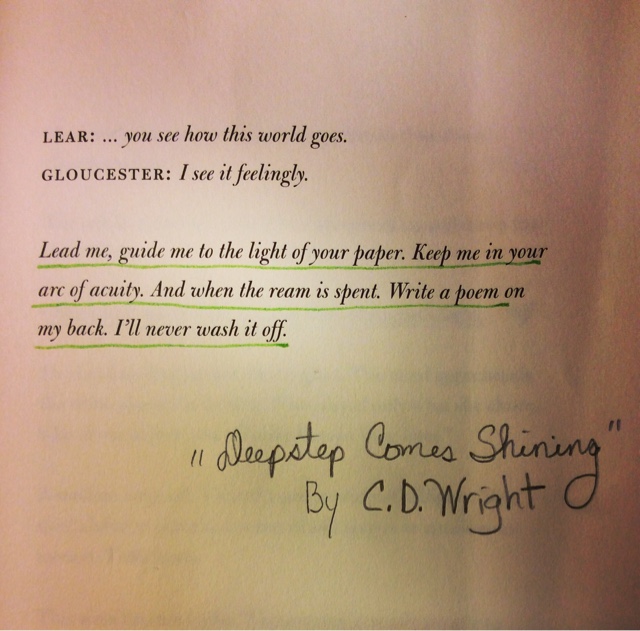 LEAR: ... you see how this world goes.
GLOUCESTER: I see it feelingly.
Lead me, guide me to the light of your paper. Keep me in your
arc of acuity. And when the ream is spent. Write a poem on
my back. I'll never wash it off.
"Deepstep Comes Shining"
By C.D. Wright